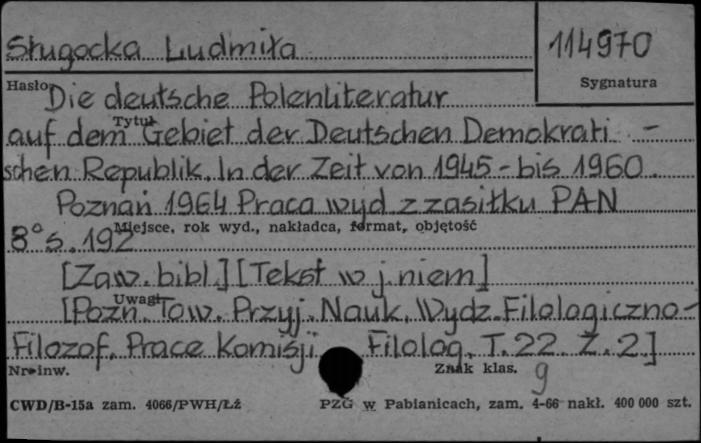 Sługocka Ludmiła
114970
Hasło
Sygnatura
Die deutsche Polenliteratur
Tytuł
auf dem Gebiet der Deutschen Demokrati -
schen Republik. In der Zeit von 1945 - bis 1960.
Poznań 1964 Praca wyd z zasiłku PAN
Miejsce, rok wyd., nakładca, format, objętość
8° s. 192
[Zaw. bibl.] [Tekst w j. niem]
Uwagi
[Pozn. Tow. Przyj. Nauk, Wydz. Filologiczno-
Filozof, Prace Komisji Filolog. T. 22. Z. 2.]
Nr inw.
Znak klas.
9
CWD/B-15a zam. 4066/PWH/Łż
PZG w Pabianicach, zam. 4-66 nakł. 400 000 szt.